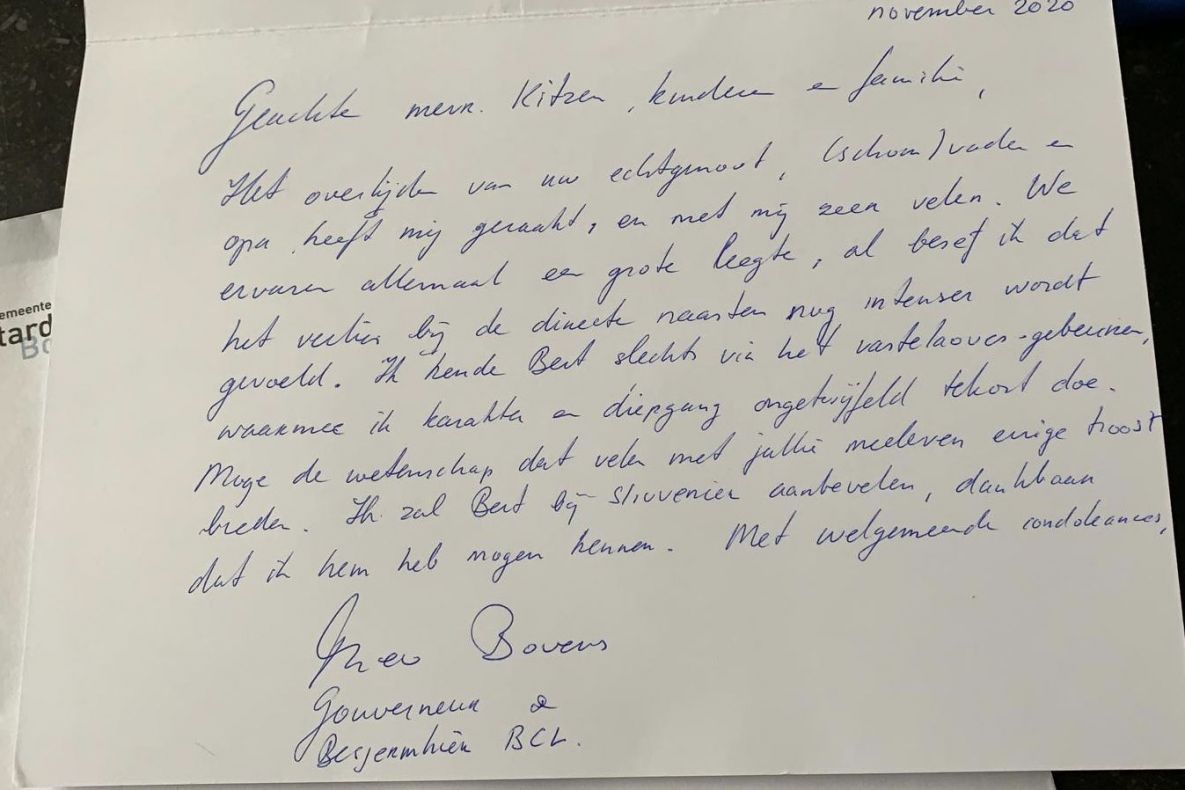 november 2020
Geachte mevr. Kitzen, kinderen en familie,
Het overlijden van uw echtgenoot, (schoon)vader en
opa heeft mij geraakt, en met mij zeer velen. We
ervaren allemaal een grote leegte, al besef ik dat
het verlies bij de directe naasten nog intenser wordt
gevoeld. Ik kende Bert slechts via het vastelaoves-gebeuren,
waarmee ik karakter en diepgang ongetwijfeld tekort doe.
Moge de wetenschap dat velen met jullie meeleven enige troost
bieden. Ik zal Bert bij Sluvenier aanbevelen, dankbaar
dat ik hem heb mogen kennen. Met welgemeende condoleances,
Theo Bovens
Gouverneur &
Besjermhièr BCL.
emeente
tard